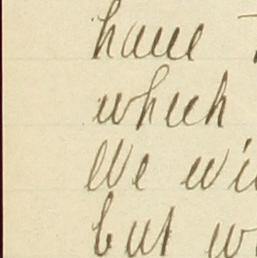 have
which
We
but